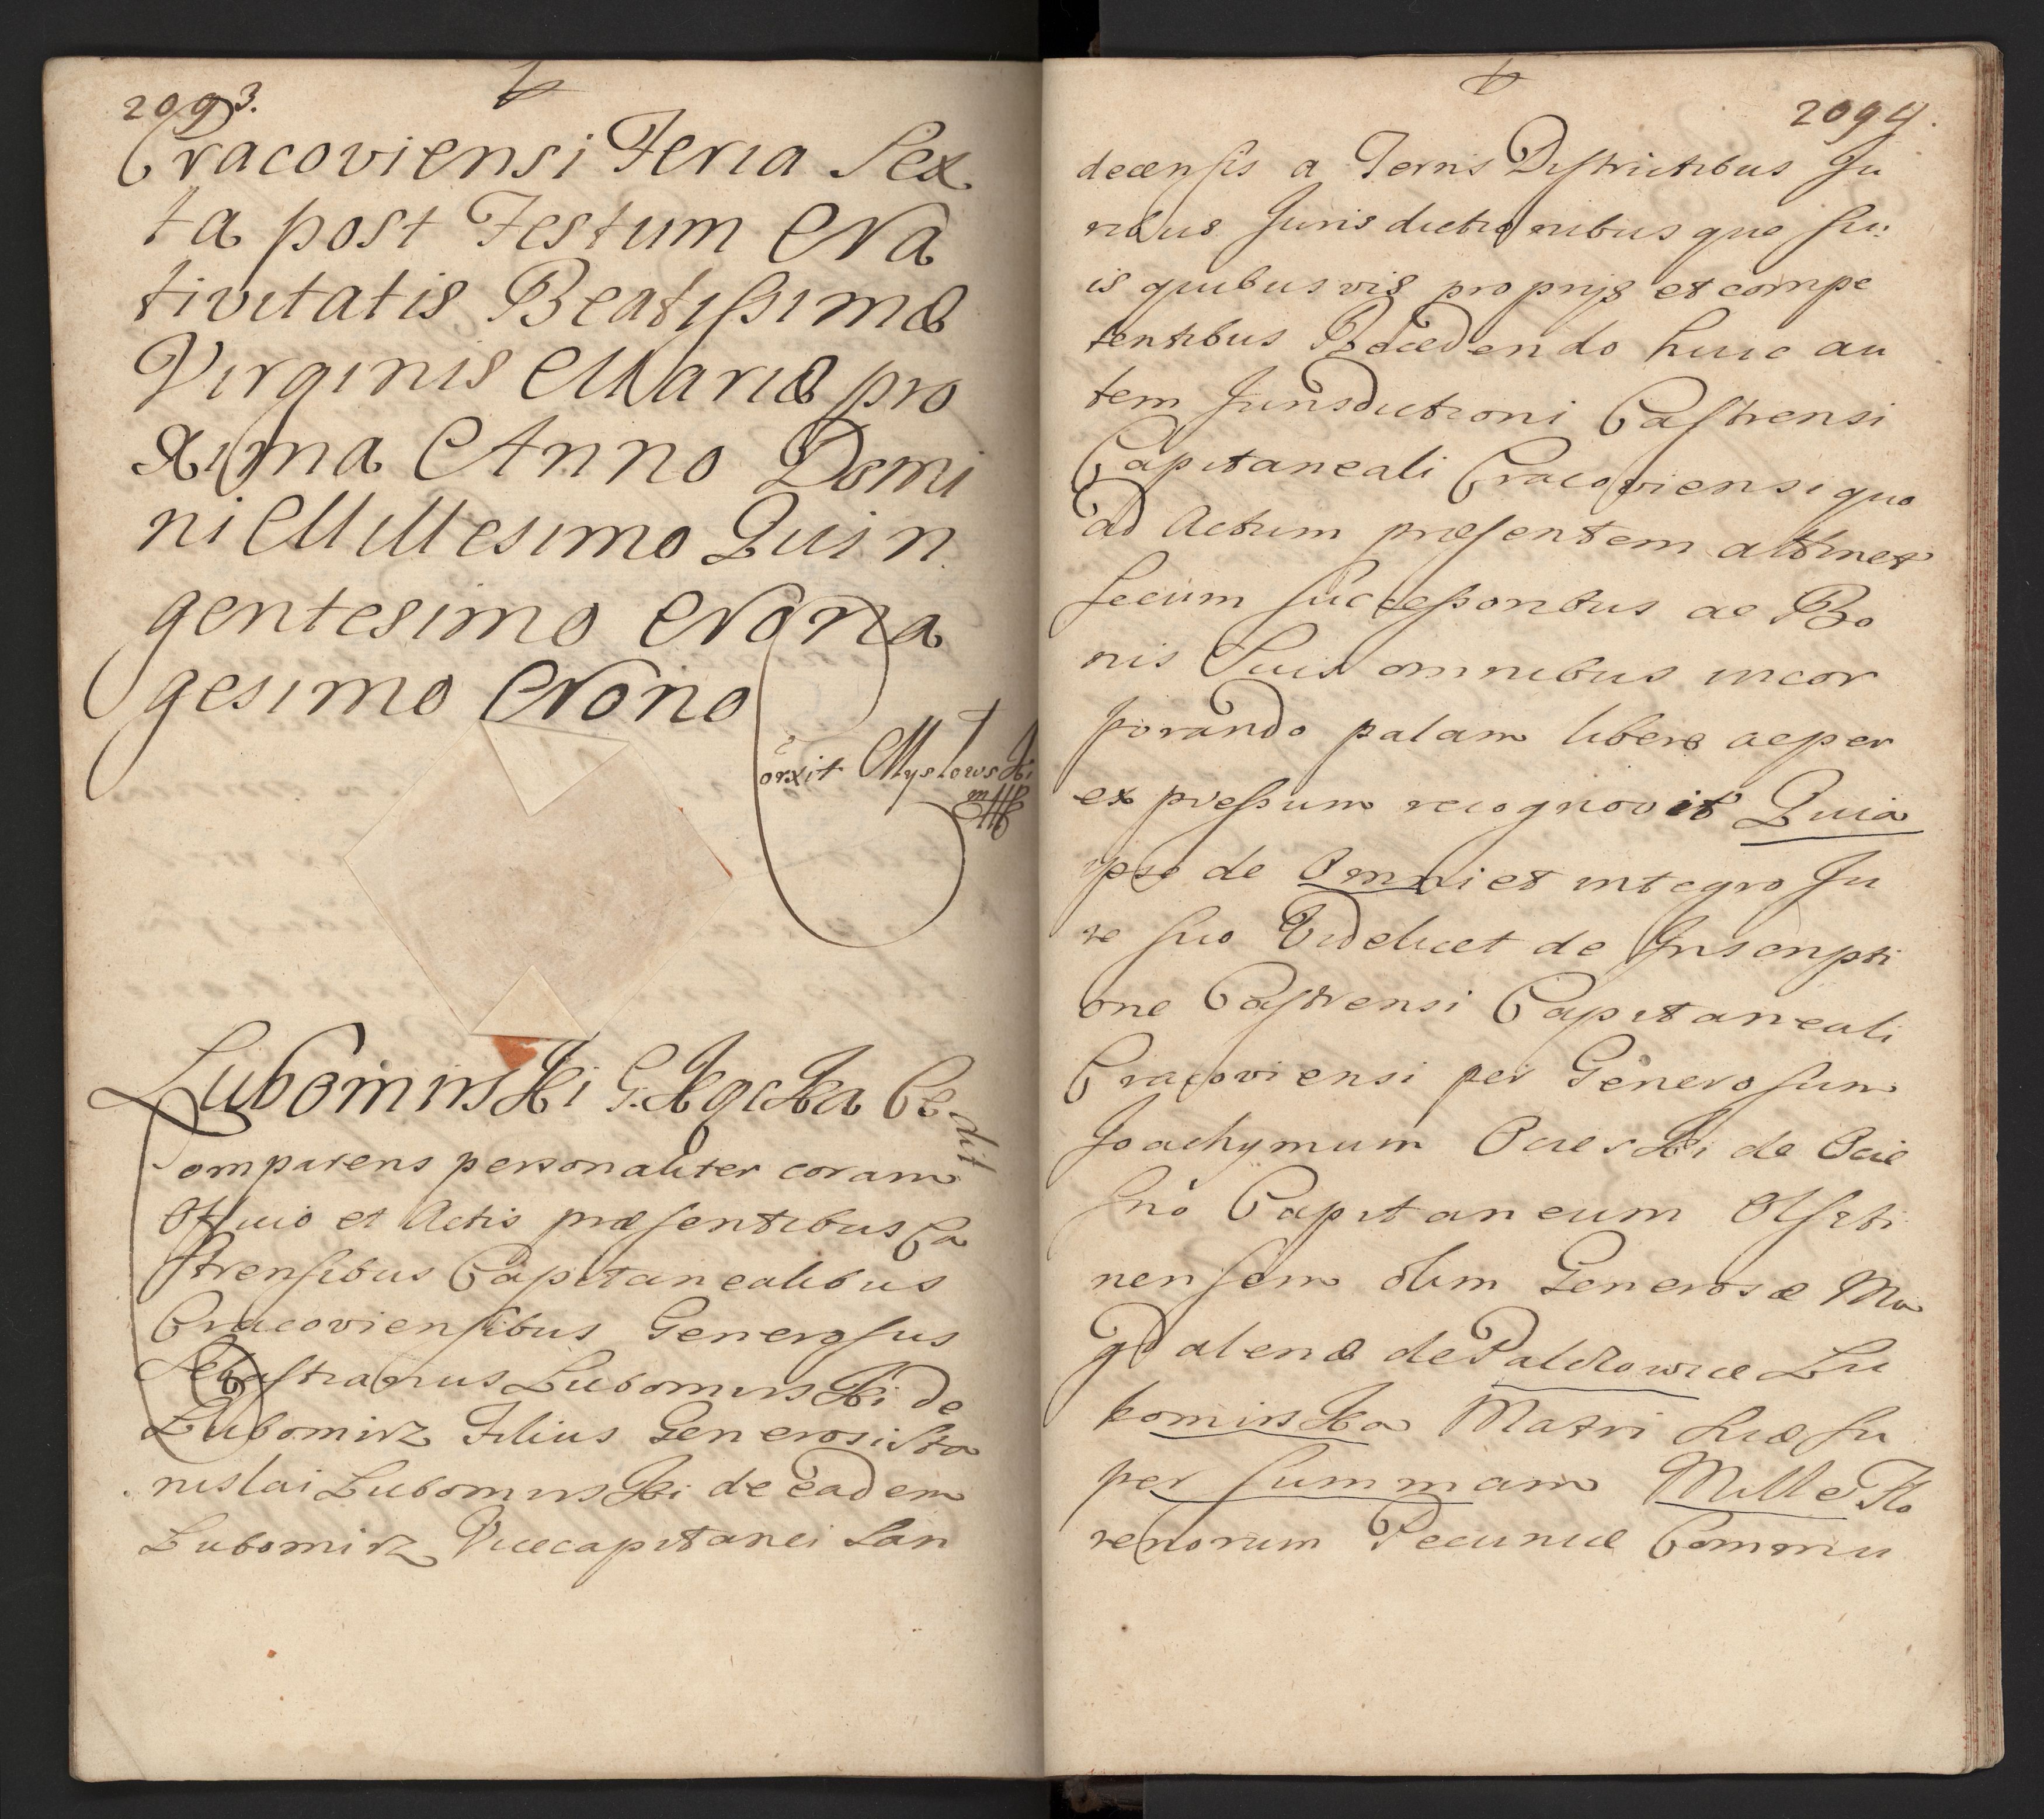 2093.
Cracoviensi Feria Sex
ta post Festum Na
tivitatis Beatissimæ
Virginis Mariæ pro
xima Anno Domi
ni Millesimo Quin
gentesimo Nona
gesimo Nono
Corxit Mysłowski
mpp
Lubomirski G. Kącka Cedit
Comparens personaliter coram
Officio et Actis præsentibus Ca
strensibus Capitanealibus
Cracoviensibus Generosus
Sebastianus Lubomirski de
Lubomirz Filius Generosi Sta
nislai Lubomirski de eadem
Lubomirz Vicecapitanei San
2094.
decensis a Terris Districtibus Ju
ribus Jurisdictionibusque su
is quibusvis proprijs et compe
tentibus Recedendo huic au
tem Jurisdictioni Castrensi
Capitaneali Cracoviensi quo
ad Actum præsentem attinet
secum Successoribus ac Bo
nis Suis omnibus incor
porando palam libere ac per
expressum recognovit Quia
ipse de Omni et integro Ju
re suo Videlicet de Inscripti
one Castrensi Capitaneali
Cracoviensi per Generosum
Joachymum Ocieski de Ocie
szno Capitaneum Olszti
nensem olim Generosæ Ma
gdalenæ de Palczowice Lu
bomirska Matri suæ su
per summam Mille Flo
renorum Pecuniæ Commu